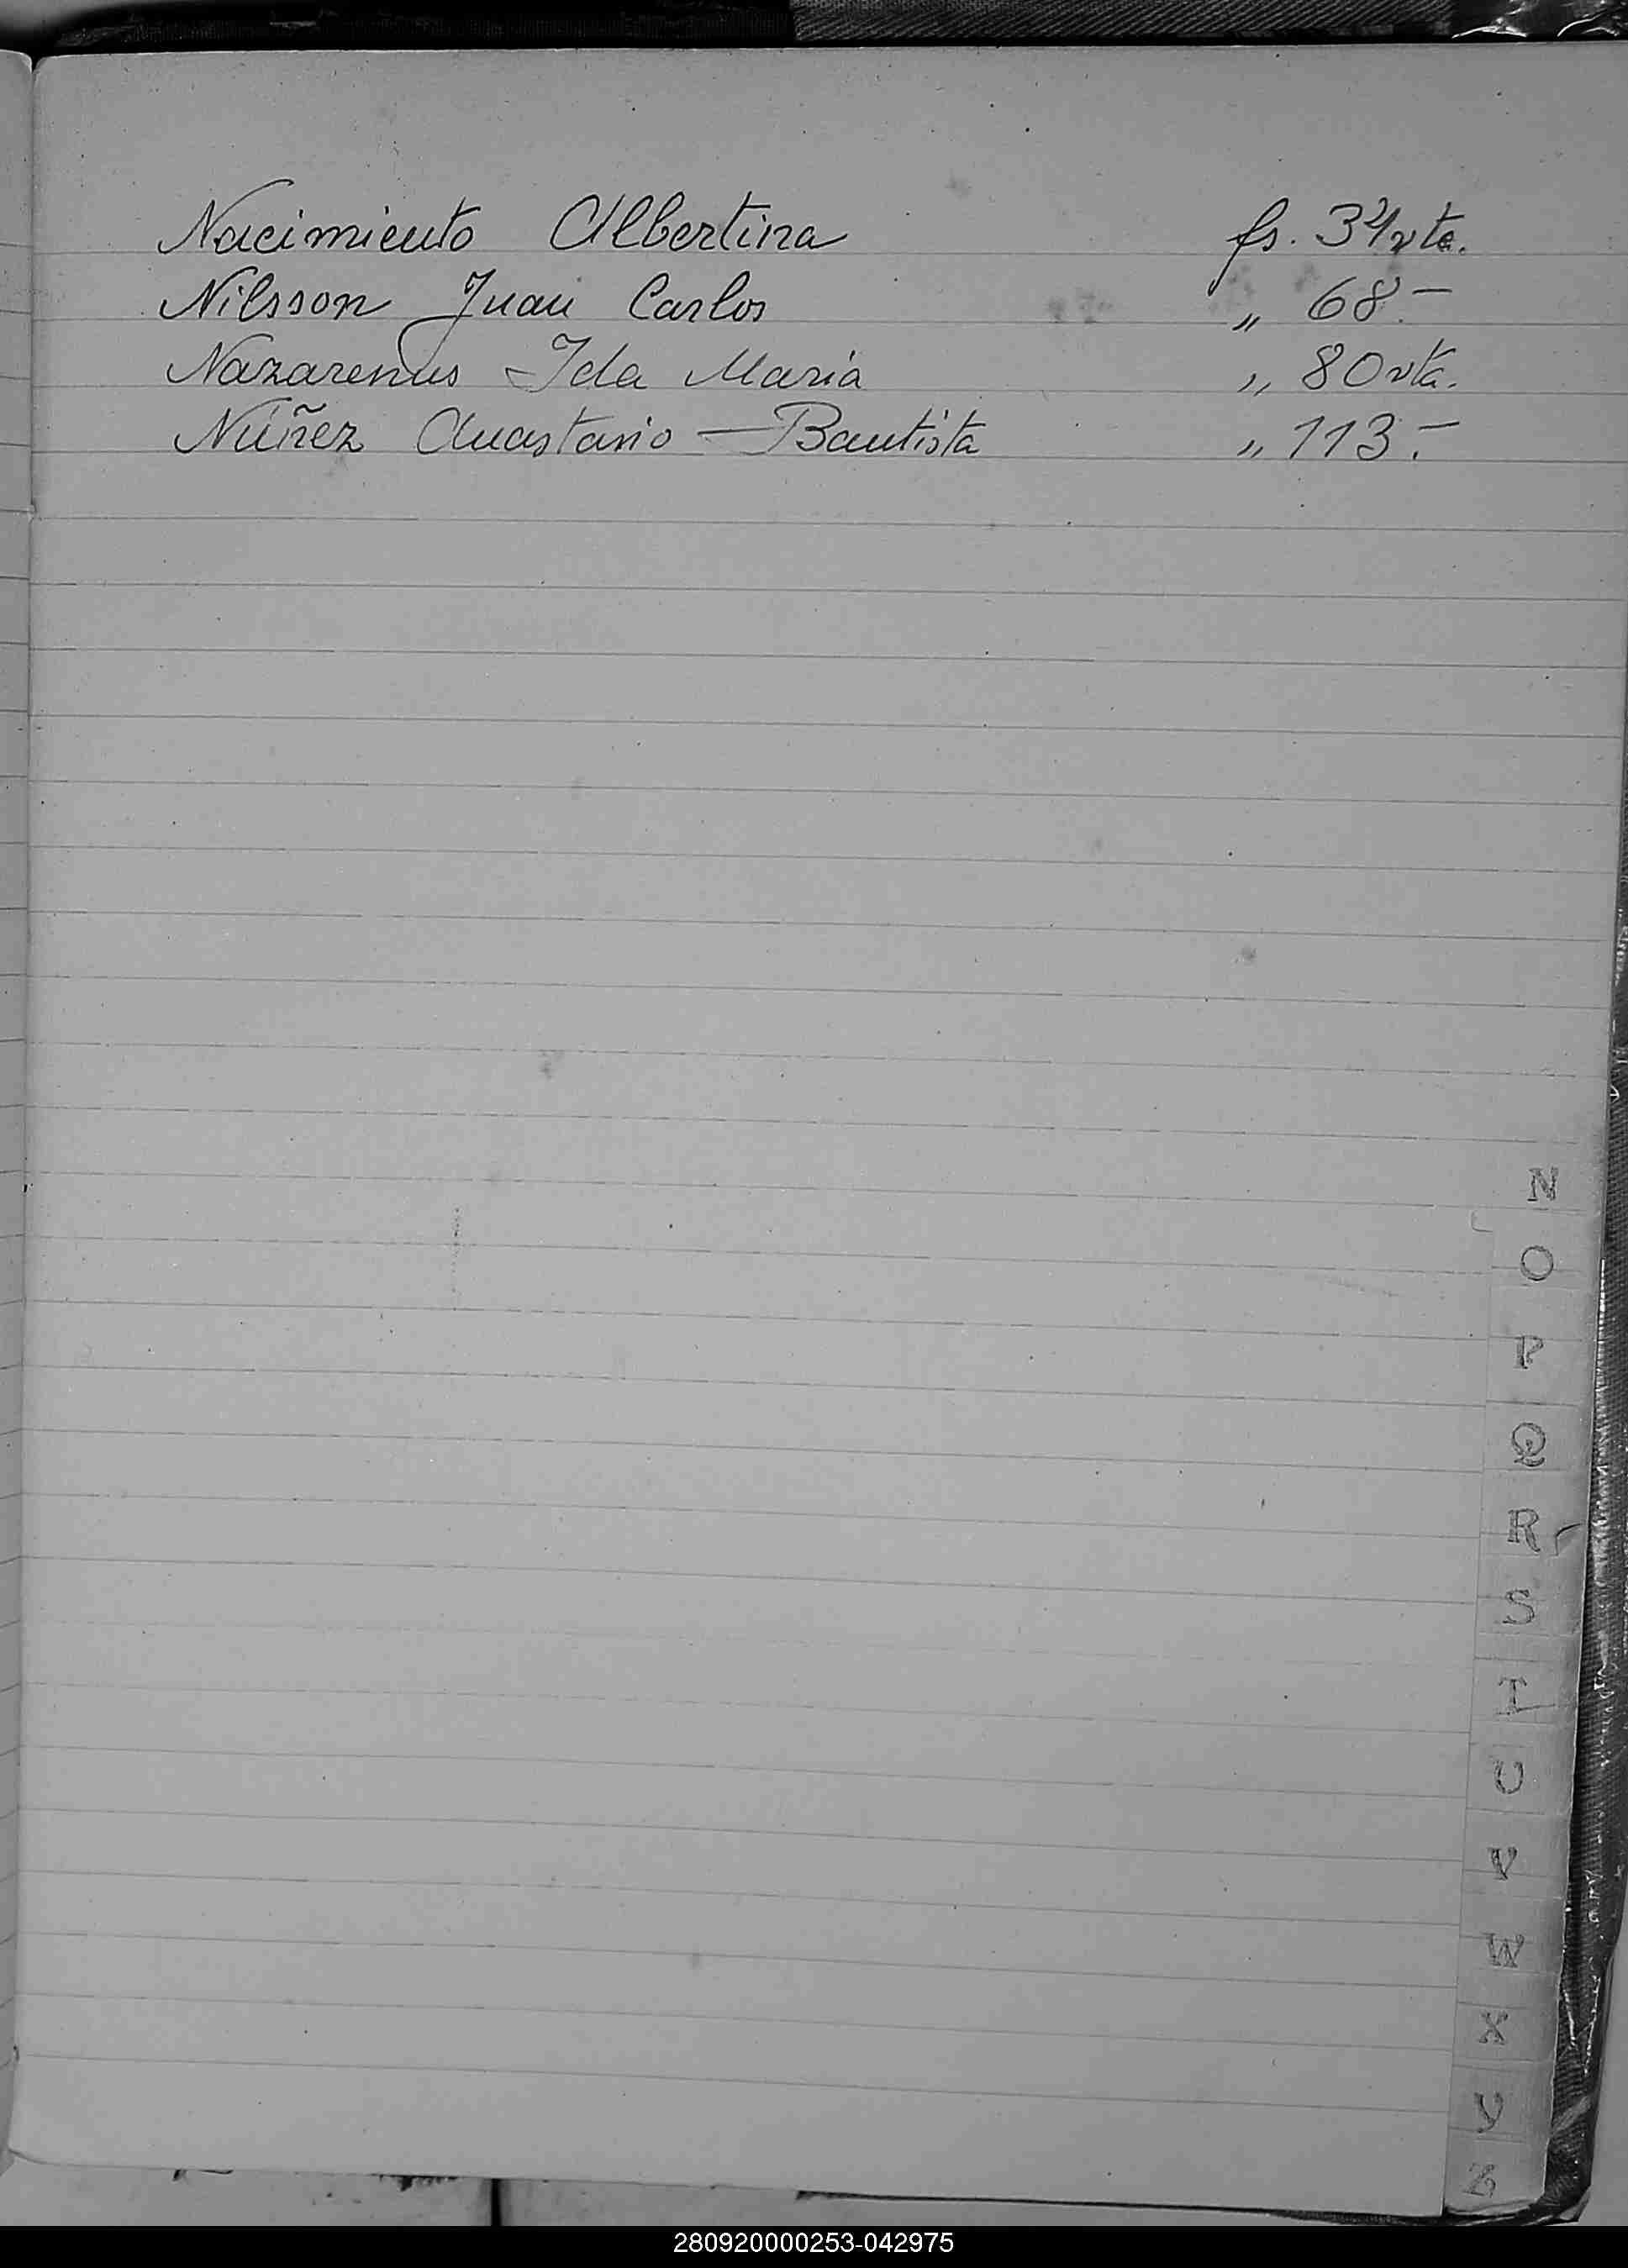 Nacimiento Albertina fs. 34vta.
Nilsson Juan Carlos „ 68.-
Nazarenus Ida María „ 80vta.
Núñez Anastasio - Bautista „ 113.-
N
O
P
Q
R
S
T
U
V
W
X
Y
Z
280920000253-042975